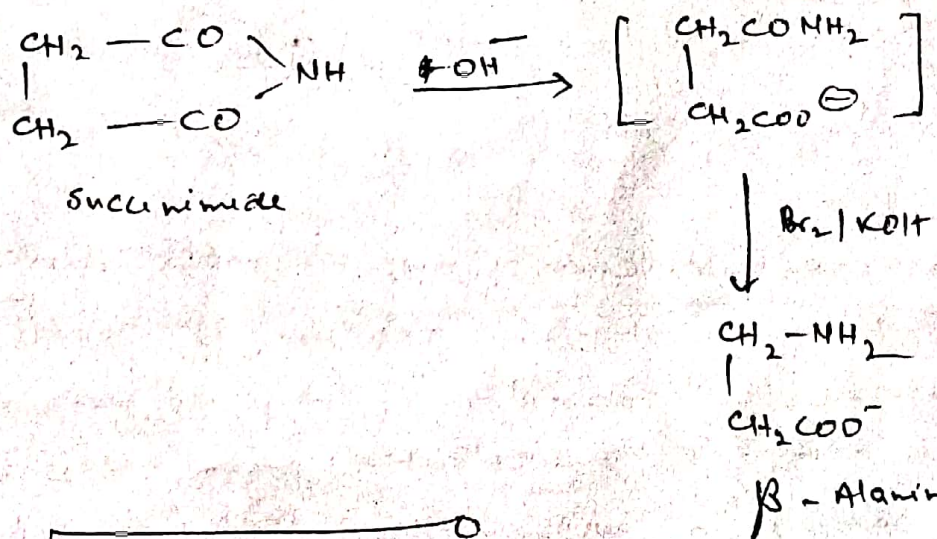 CH₂ — CO
NH
CH₂ — CO
OH⁻
[ CH₂CONH₂
CH₂COO⊖ ]
Succinimide
Br₂ | KOH
CH₂-NH₂
CH₂COO⁻
β - Alanin